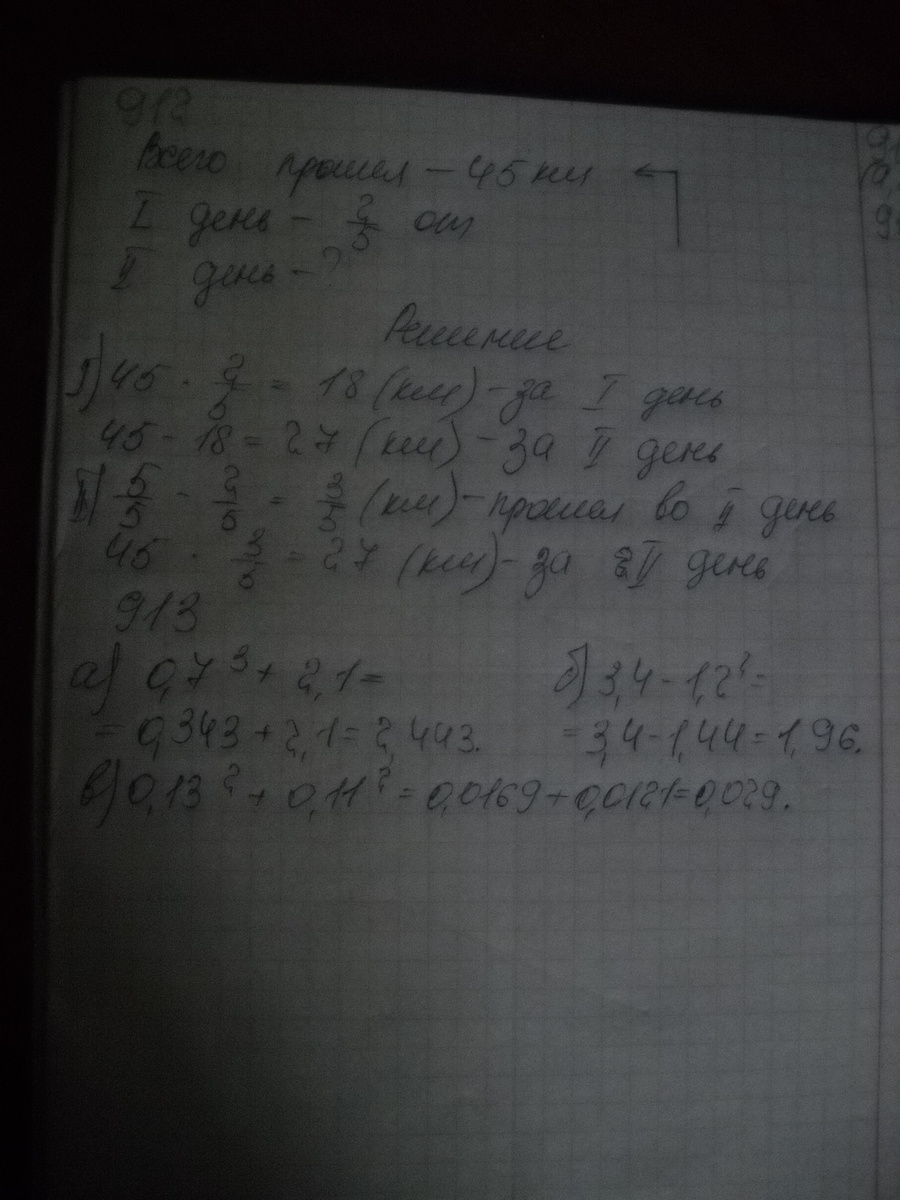 912
Всего прошел – 45 км
I день – 2/5 от
II день – ?
Решение
I) 45 · 2/5 = 18 (км) – за I день
45 - 18 = 27 (км) – за II день
II) 5/5 - 2/5 = 3/5 (км) – прошел во II день
45 · 3/5 = 27 (км) – за II день
913
а) 0,7³ + 2,1 =
= 0,343 + 2,1 = 2,443.
б) 3,4 - 1,2² =
= 3,4 - 1,44 = 1,96.
в) 0,13² + 0,11² = 0,0169 + 0,0121 = 0,029.